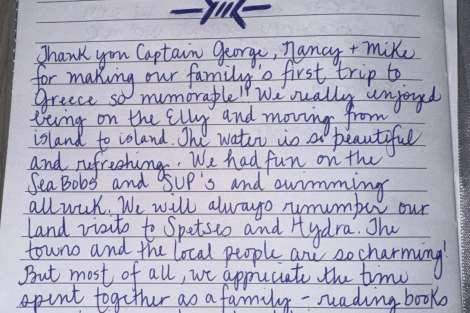 Thank you Captain George, Nancy + Mike
for making our family's first trip to
Greece so memorable!! We really enjoyed
being on the Elly and moving from
island to island. The water is so beautiful
and refreshing. We had fun on the
SeaBobs and SUP's and swimming
all week. We will always remember our
land visits to Spetses and Hydra. The
towns and the local people are so charming!
But most of all, we appreciate the time
spent together as a family - reading books